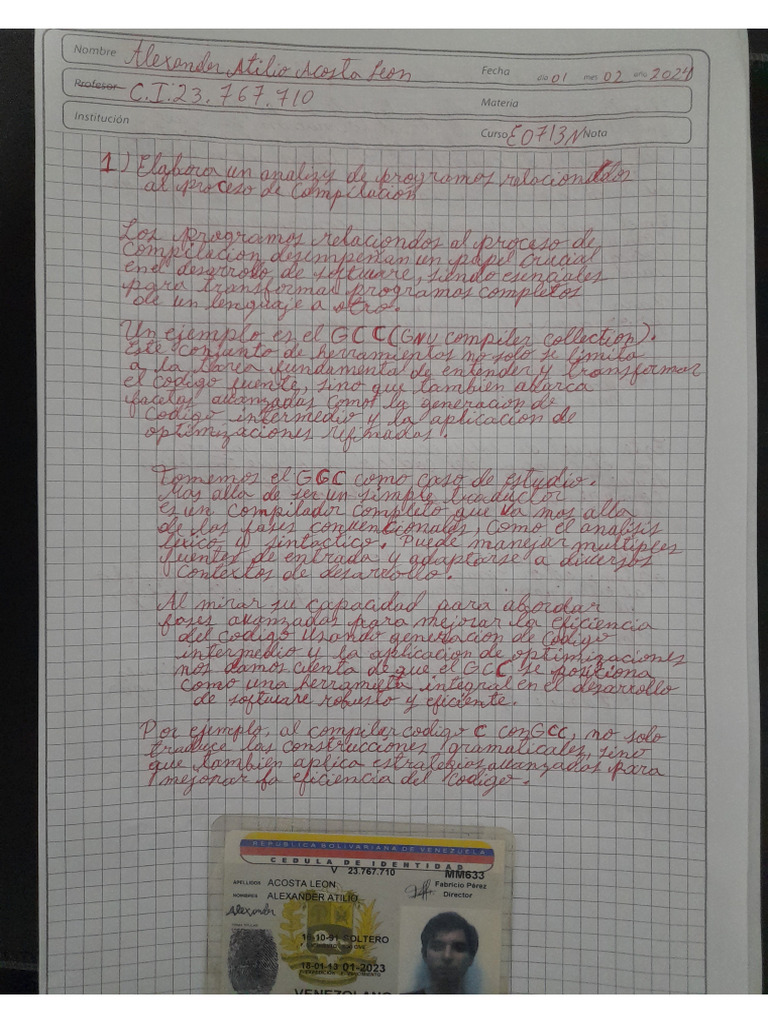 Nombre Alexander Atilio Acosta Leon Fecha día 01 mes 02 año 2024
Profesor C.I:23.767.710 Materia
Institución Curso E0713N Nota
1) Elabora un analizis de programos relacionddos
al proceso de Compilacion
Los programos relaciondos al proceso de
compilacion desempeñan un papel crucial
en el desarrollo de software, siendo esenciales
para transformar programos completos
de un lenguaje a otro.
Un ejemplo es el GCC (GNU compiler collection).
Este conjunto de herramientas no solo se limita
a la tarea fundamental de entender y transformar
el codigo fuente, sino que tambien abarca
facetas avanzadas como la generacion de
codigo intermedio y la aplicacion de
optimizaciones refinadas.
Tomemos el GGC como caso de estudio.
Mas alla de ser un simple traductor
es un compilador completo que va mas alla
de las fases convencionales, como el analisis
lexico y sintactico. Puede manejar multiples
fuentes de entrada y adaptarse a diversos
contextos de desarrollo.
Al mirar su capacidad para abordar
fases avanzadas para mejorar la eficiencia
del codigo usando generacion de codigo
intermedio y la aplicacion de optimizaciones
nos damos cuenta de que el GCC se posiciona
como una herramieta integral en el desarrollo
de software robusto y eficiente.
Por ejemplo, al compilar codigo C con GCC, no solo
traduce las construcciones gramaticales, sino
que tambien aplica estrategias avanzadas para
mejorar la eficiencia del codigo.
REPÚBLICA BOLIVARIANA DE VENEZUELA
CEDULA DE IDENTIDAD
V 23.767.710 MM633
APELLIDOS ACOSTA LEON Fabricio Pérez
NOMBRES ALEXANDER ATILIO Director
Alexander
16-10-91 SOLTERO
18-01-13 01-2023
VENEZOLANO